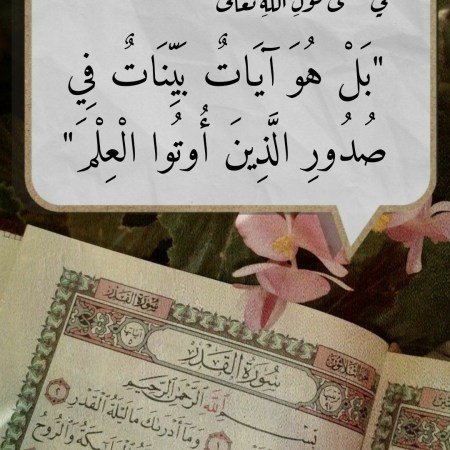 في معنى قولِ اللهِ تعالى
"بَلْ هُوَ آيَاتٌ بَيِّنَاتٌ فِي
صُدُورِ الَّذِينَ أُوتُوا الْعِلْمَ"
سُورَةُ الْقَدْرِ
سُورَةُ الْقَدْرِ
بِسْمِ اللَّهِ الرَّحْمَٰنِ الرَّحِيمِ
١ وَمَا أَدْرَىٰكَ مَا لَيْلَةُ الْقَدْرِ ٢
وَالرُّوحُ